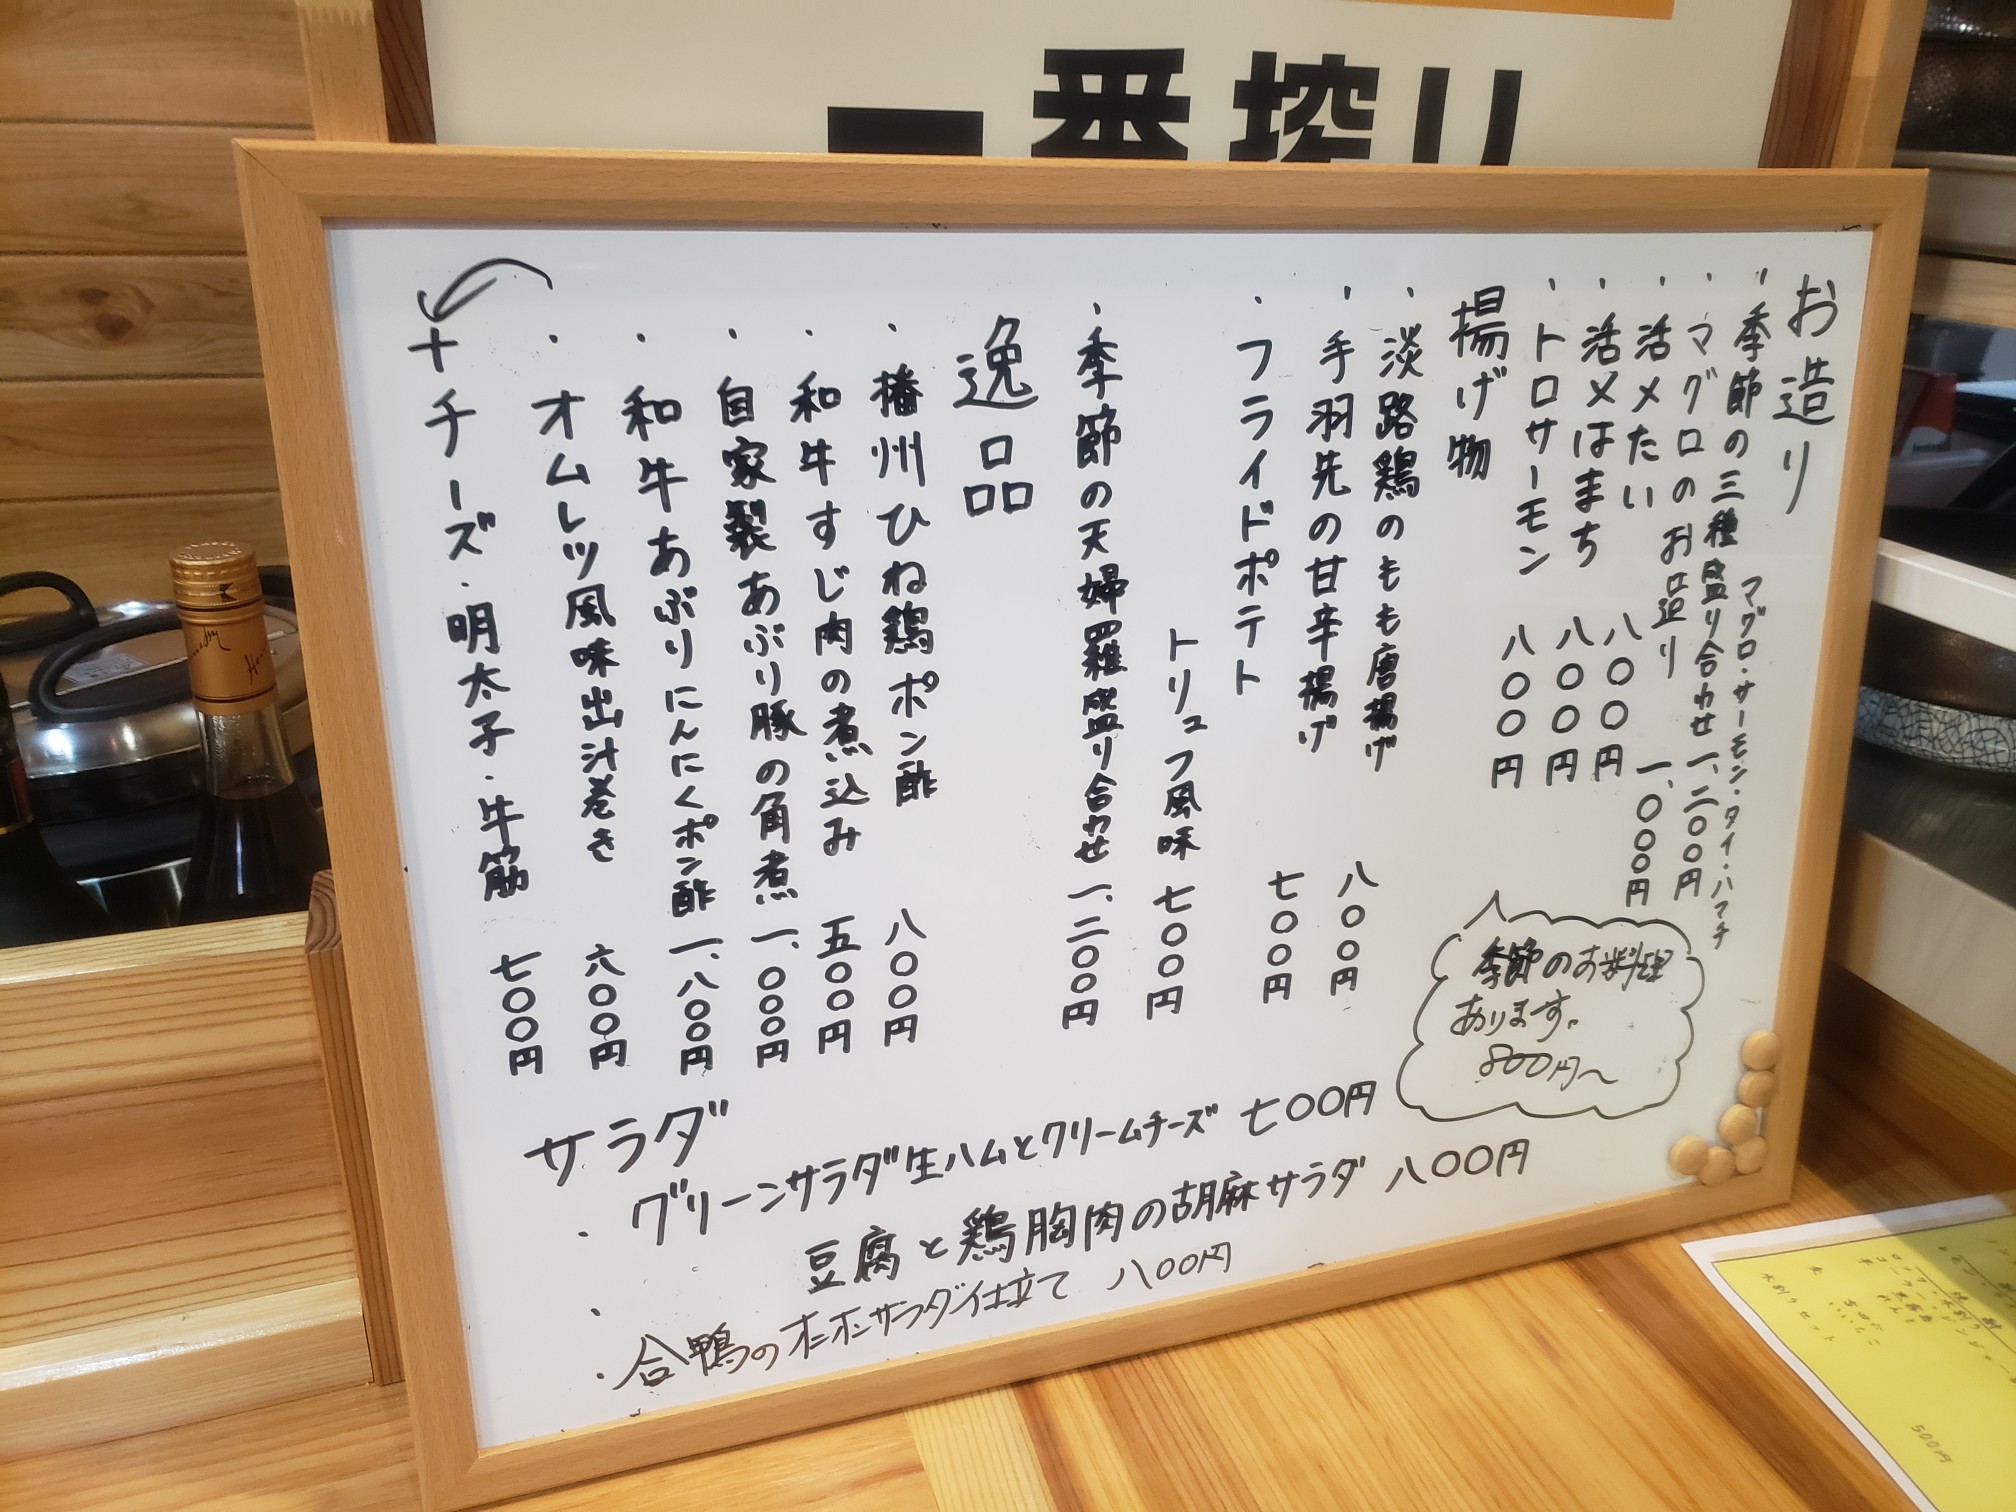 一番搾り
お造り
・季節の三種盛り合わせ 一、二〇〇円
マグロ・サーモン・タイ・ハマチ
・マグロのお造り 一、〇〇〇円
・活〆たい 八〇〇円
・活〆はまち 八〇〇円
・トロサーモン 八〇〇円
揚げ物
・淡路鶏のもも唐揚げ 八〇〇円
・手羽先の甘辛揚げ 七〇〇円
・フライドポテト
トリュフ風味 七〇〇円
・季節の天婦羅盛り合わせ 一、二〇〇円
逸品
・播州ひね鶏ポン酢 八〇〇円
・和牛すじ肉の煮込み 五〇〇円
・自家製あぶり豚の角煮 一、〇〇〇円
・和牛あぶりにんにくポン酢 一、八〇〇円
・オムレツ風味出汁巻き 六〇〇円
＋チーズ・明太子・牛筋 七〇〇円
季節のお料理
あります。
800円〜
サラダ
・グリーンサラダ生ハムとクリームチーズ 七〇〇円
・豆腐と鶏胸肉の胡麻サラダ 八〇〇円
・合鴨のオニオンサラダ仕立て 八〇〇円
水割りセット
500円